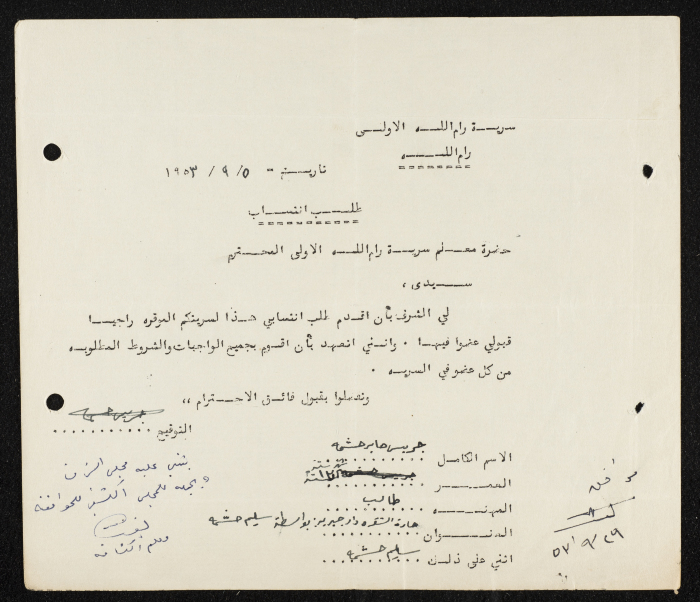 سرية رام الله الاولى
رام الله
تاريخ - ٥ / ٩ / ١٩٥٣
طلب انتساب
حضرة معلم سرية رام الله الاولى المحترم
سيدى ،
لي الشرف بأن اقدم طلب انتسابي هذا لسريتكم الموقره راجيا
قبولي عضوا فيها . وانني اتعهد بأن اقوم بجميع الواجبات والشروط المطلوبه
من كل عضو في السريه .
وتفضلوا بقبول فائق الاحترام ،،
التوقيع
الاسم الكامل جريس جابر حشمه
العمر ١٢ سنة
المهنه طالب
العنوان حارة الشقره دار جريس بواسطة سليم حشمه
اثني على ذلك سليم حشمه
يثني عليه مجلس
للموافقة
موافق
٢٩ / ٩ /